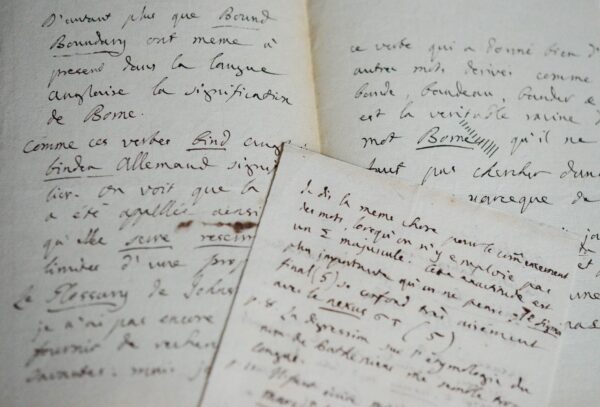 D'autant plus que Bound
Boundary ont meme à
present dans la langue
anglaise la signification
de Borne.
Comme ces verbes bind angl
binden Allemand signi
lier. On voit que la
a été appellée ainsi
qu'elle serre
limites d'une pro
Le Glossary de Johns
je n'ai pas encore
fournir de recher
ce verbe qui a donné bien d'
autres mots derivés comme
bande, bandeau, bander e
est la veritable racine d
mot Borne qu'il ne
faut pas chercher dans
que de
Je dis la meme chose pour le commencement
des mots, lorsqu'on n'y emploie pas
un Σ majuscule. Cette exactitude est
plus importante qu'on ne pense. le sigma
final (ς) se confond très aisement
avec le nexus στ (ς)
p. 8. La digression sur l'etymologie du
nom de
longue.